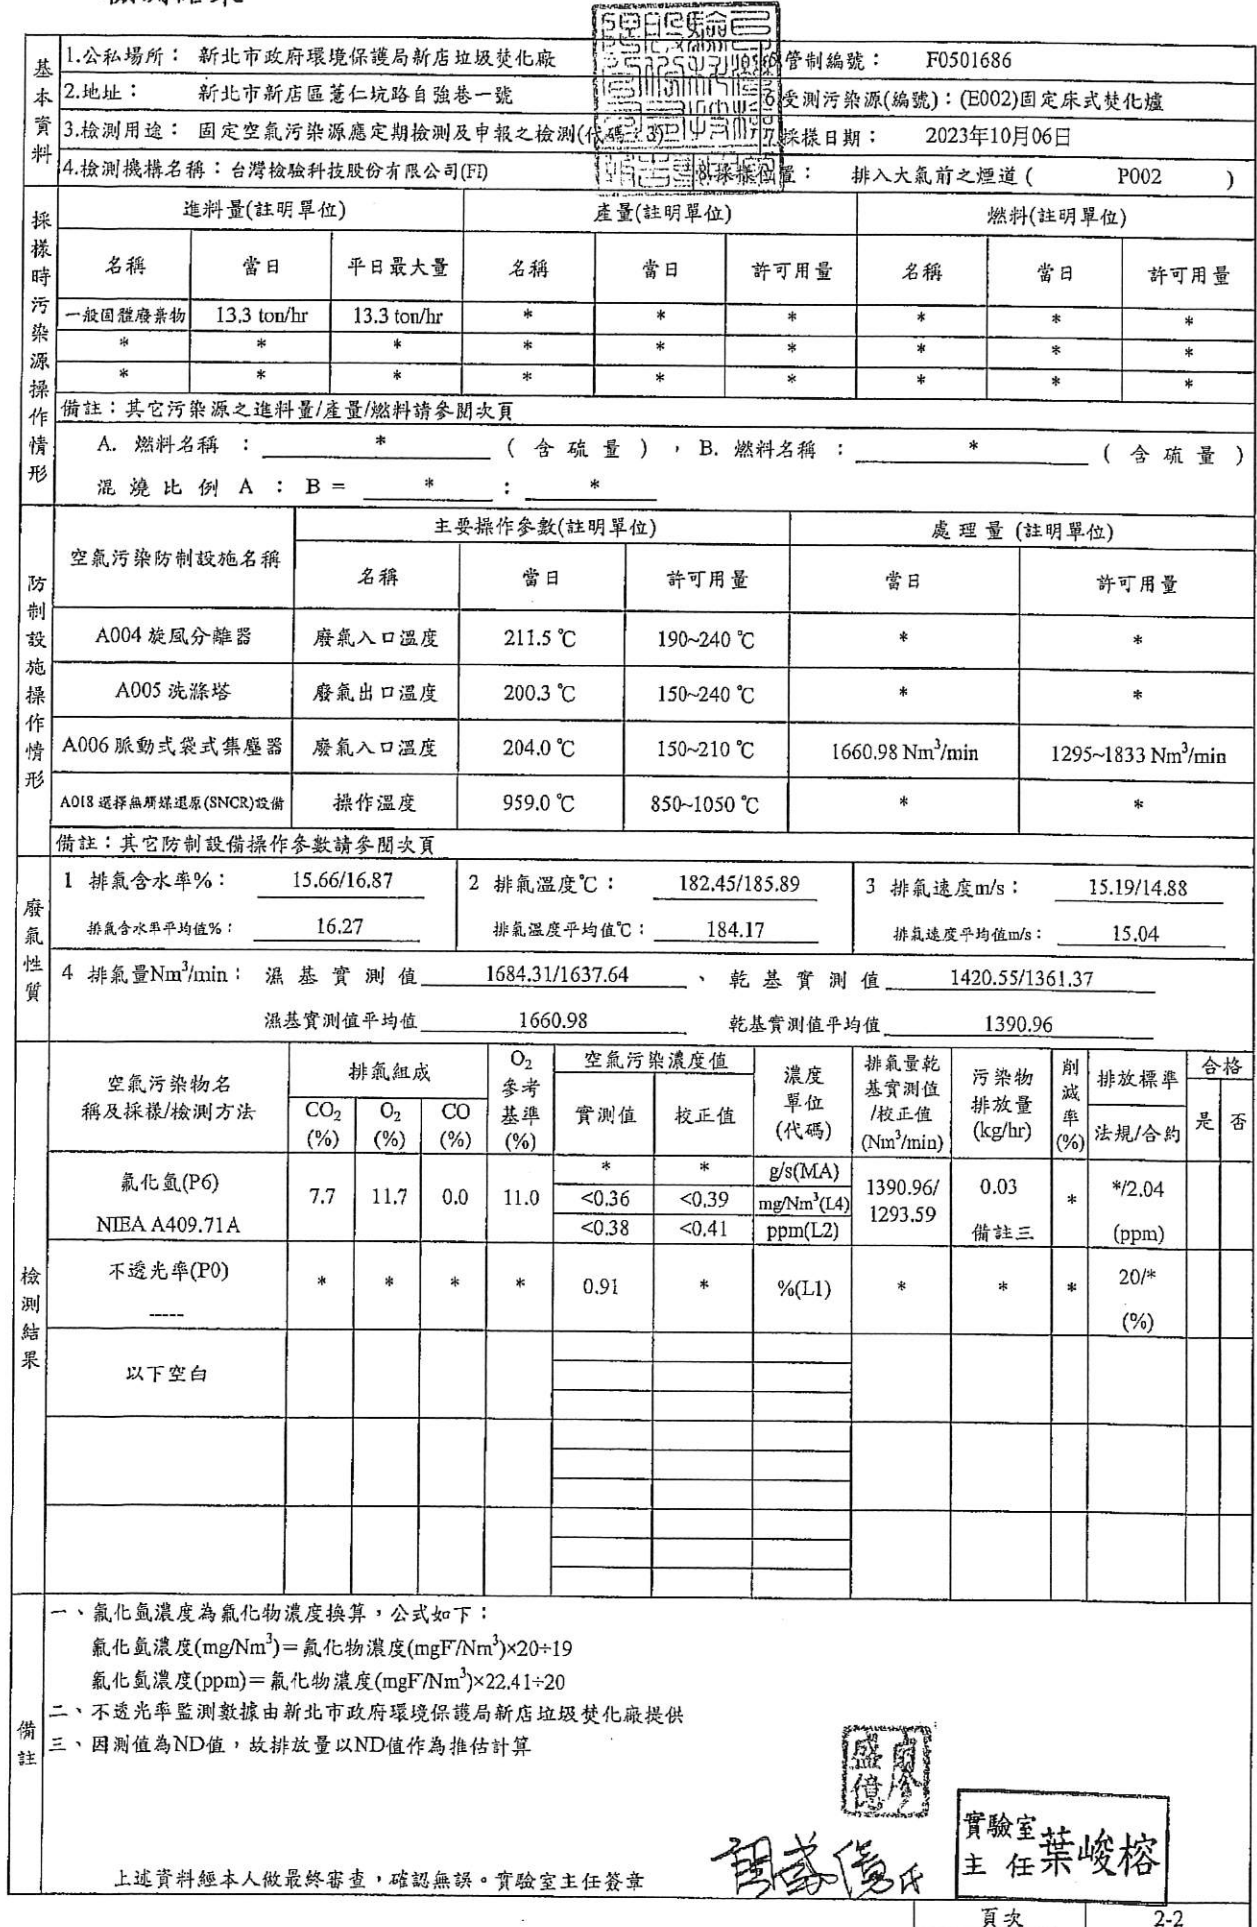 基本資料
1.公私場所： 新北市政府環境保護局新店垃圾焚化廠
管制編號： F0501686
2.地址： 新北市新店區薏仁坑路自強巷一號
6.受測污染源(編號)：(E002)固定床式焚化爐
3.檢測用途： 固定空氣污染源應定期檢測及申報之檢測(代碼:3)
7.採樣日期： 2023年10月06日
4.檢測機構名稱：台灣檢驗科技股份有限公司(FI)
8.採樣位置： 排入大氣前之煙道( P002 )
採樣時污染源操作情形
進料量(註明單位) 產量(註明單位) 燃料(註明單位)
名稱 當日 平日最大量 名稱 當日 許可用量 名稱 當日 許可用量
一般固體廢棄物 13.3 ton/hr 13.3 ton/hr * * * * * *
* * * * * * * * *
* * * * * * * * *
備註：其它污染源之進料量/產量/燃料請參閱次頁
A. 燃料名稱 ： * ( 含 硫 量 ) ，B. 燃料名稱 ： * ( 含 硫 量 )
混 燒 比 例 A ： B = * ： *
防制設施操作情形
空氣污染防制設施名稱 主要操作參數(註明單位) 處理量 (註明單位)
名稱 當日 許可用量 當日 許可用量
A004 旋風分離器 廢氣入口溫度 211.5 ℃ 190~240 ℃ * *
A005 洗滌塔 廢氣出口溫度 200.3 ℃ 150~240 ℃ * *
A006 脈動式袋式集塵器 廢氣入口溫度 204.0 ℃ 150~210 ℃ 1660.98 Nm³/min 1295~1833 Nm³/min
A018 選擇無觸媒還原(SNCR)設備 操作溫度 959.0 ℃ 850~1050 ℃ * *
備註：其它防制設備操作參數請參閱次頁
廢氣性質
1 排氣含水率%： 15.66/16.87 2 排氣溫度℃： 182.45/185.89 3 排氣速度m/s： 15.19/14.88
排氣含水率平均值%： 16.27 排氣溫度平均值℃： 184.17 排氣速度平均值m/s： 15.04
4 排氣量Nm³/min： 濕 基 實 測 值 1684.31/1637.64 、 乾 基 實 測 值 1420.55/1361.37
濕基實測值平均值 1660.98 乾基實測值平均值 1390.96
檢測結果
空氣污染物名稱及採樣/檢測方法 排氣組成 O₂參考基準(%) 空氣污染濃度值 濃度單位(代碼) 排氣量乾基實測值/校正值(Nm³/min) 污染物排放量(kg/hr) 削減率(%) 排放標準 合格
CO₂(%) O₂(%) CO(%) 實測值 校正值 法規/合約 是 否
氟化氫(P6) NIEA A409.71A 7.7 11.7 0.0 11.0 * * g/s(MA) 1390.96/1293.59 0.03 備註三 * */2.04 (ppm)
<0.36 <0.39 mg/Nm³(L4)
<0.38 <0.41 ppm(L2)
不透光率(P0) ----- * * * * 0.91 * %(L1) * * * 20/* (%)
以下空白
備註
一、氟化氫濃度為氟化物濃度換算，公式如下：
氟化氫濃度(mg/Nm³)＝氟化物濃度(mgF⁻/Nm³)×20÷19
氟化氫濃度(ppm)＝氟化物濃度(mgF⁻/Nm³)×22.41÷20
二、不透光率監測數據由新北市政府環境保護局新店垃圾焚化廠提供
三、因測值為ND值，故排放量以ND值作為推估計算
實驗室主任 葉峻榕
上述資料經本人做最終審查，確認無誤。實驗室主任簽章
頁次 2-2